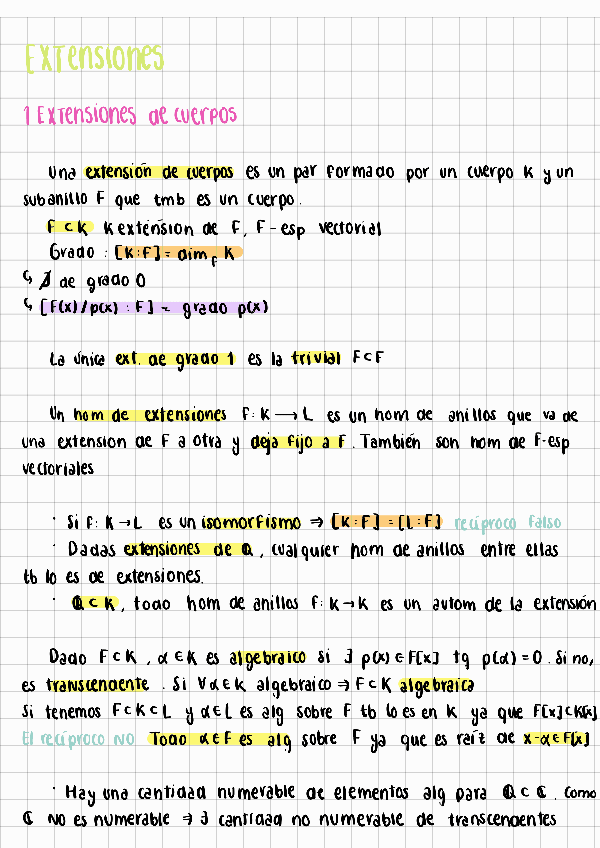 Extensiones
1 Extensiones de cuerpos
Una extensión de cuerpos es un par formado por un cuerpo K y un
subanillo F que tmb es un cuerpo.
F ⊂ K K extensión de F, F-esp vectorial
Grado : [K:F] = dim_F K
↳ ∄ de grado 0
↳ [F(x)/p(x) : F] = grado p(x)
La única ext. de grado 1 es la trivial F⊂F
Un hom de extensiones f: K → L es un hom de anillos que va de
una extension de F a otra y deja fijo a F. También son hom de F-esp
vectoriales
· Si f: K → L es un isomorfismo ⇒ [K:F] = [L:F] recíproco falso
· Dadas extensiones de ℚ, cualquier hom de anillos entre ellas
tb lo es de extensiones.
· ℚ ⊂ K, todo hom de anillos f: K → K es un autom de la extensión
Dado F⊂K, α∈K es algebraico si ∃ p(x)∈F[x] tq p(α)=0. Si no,
es transcendente. Si ∀α∈K algebraico ⇒ F⊂K algebraica
Si tenemos F⊂K⊂L y α∈L es alg sobre F tb lo es en K ya que F[x]⊂K[x]
El recíproco NO Todo α∈F es alg sobre F ya que es raíz de x-α∈F[x]
· Hay una cantidad numerable de elementos alg para ℚ⊂ℂ. Como
ℂ no es numerable ⇒ ∃ cantidad no numerable de transcendentes